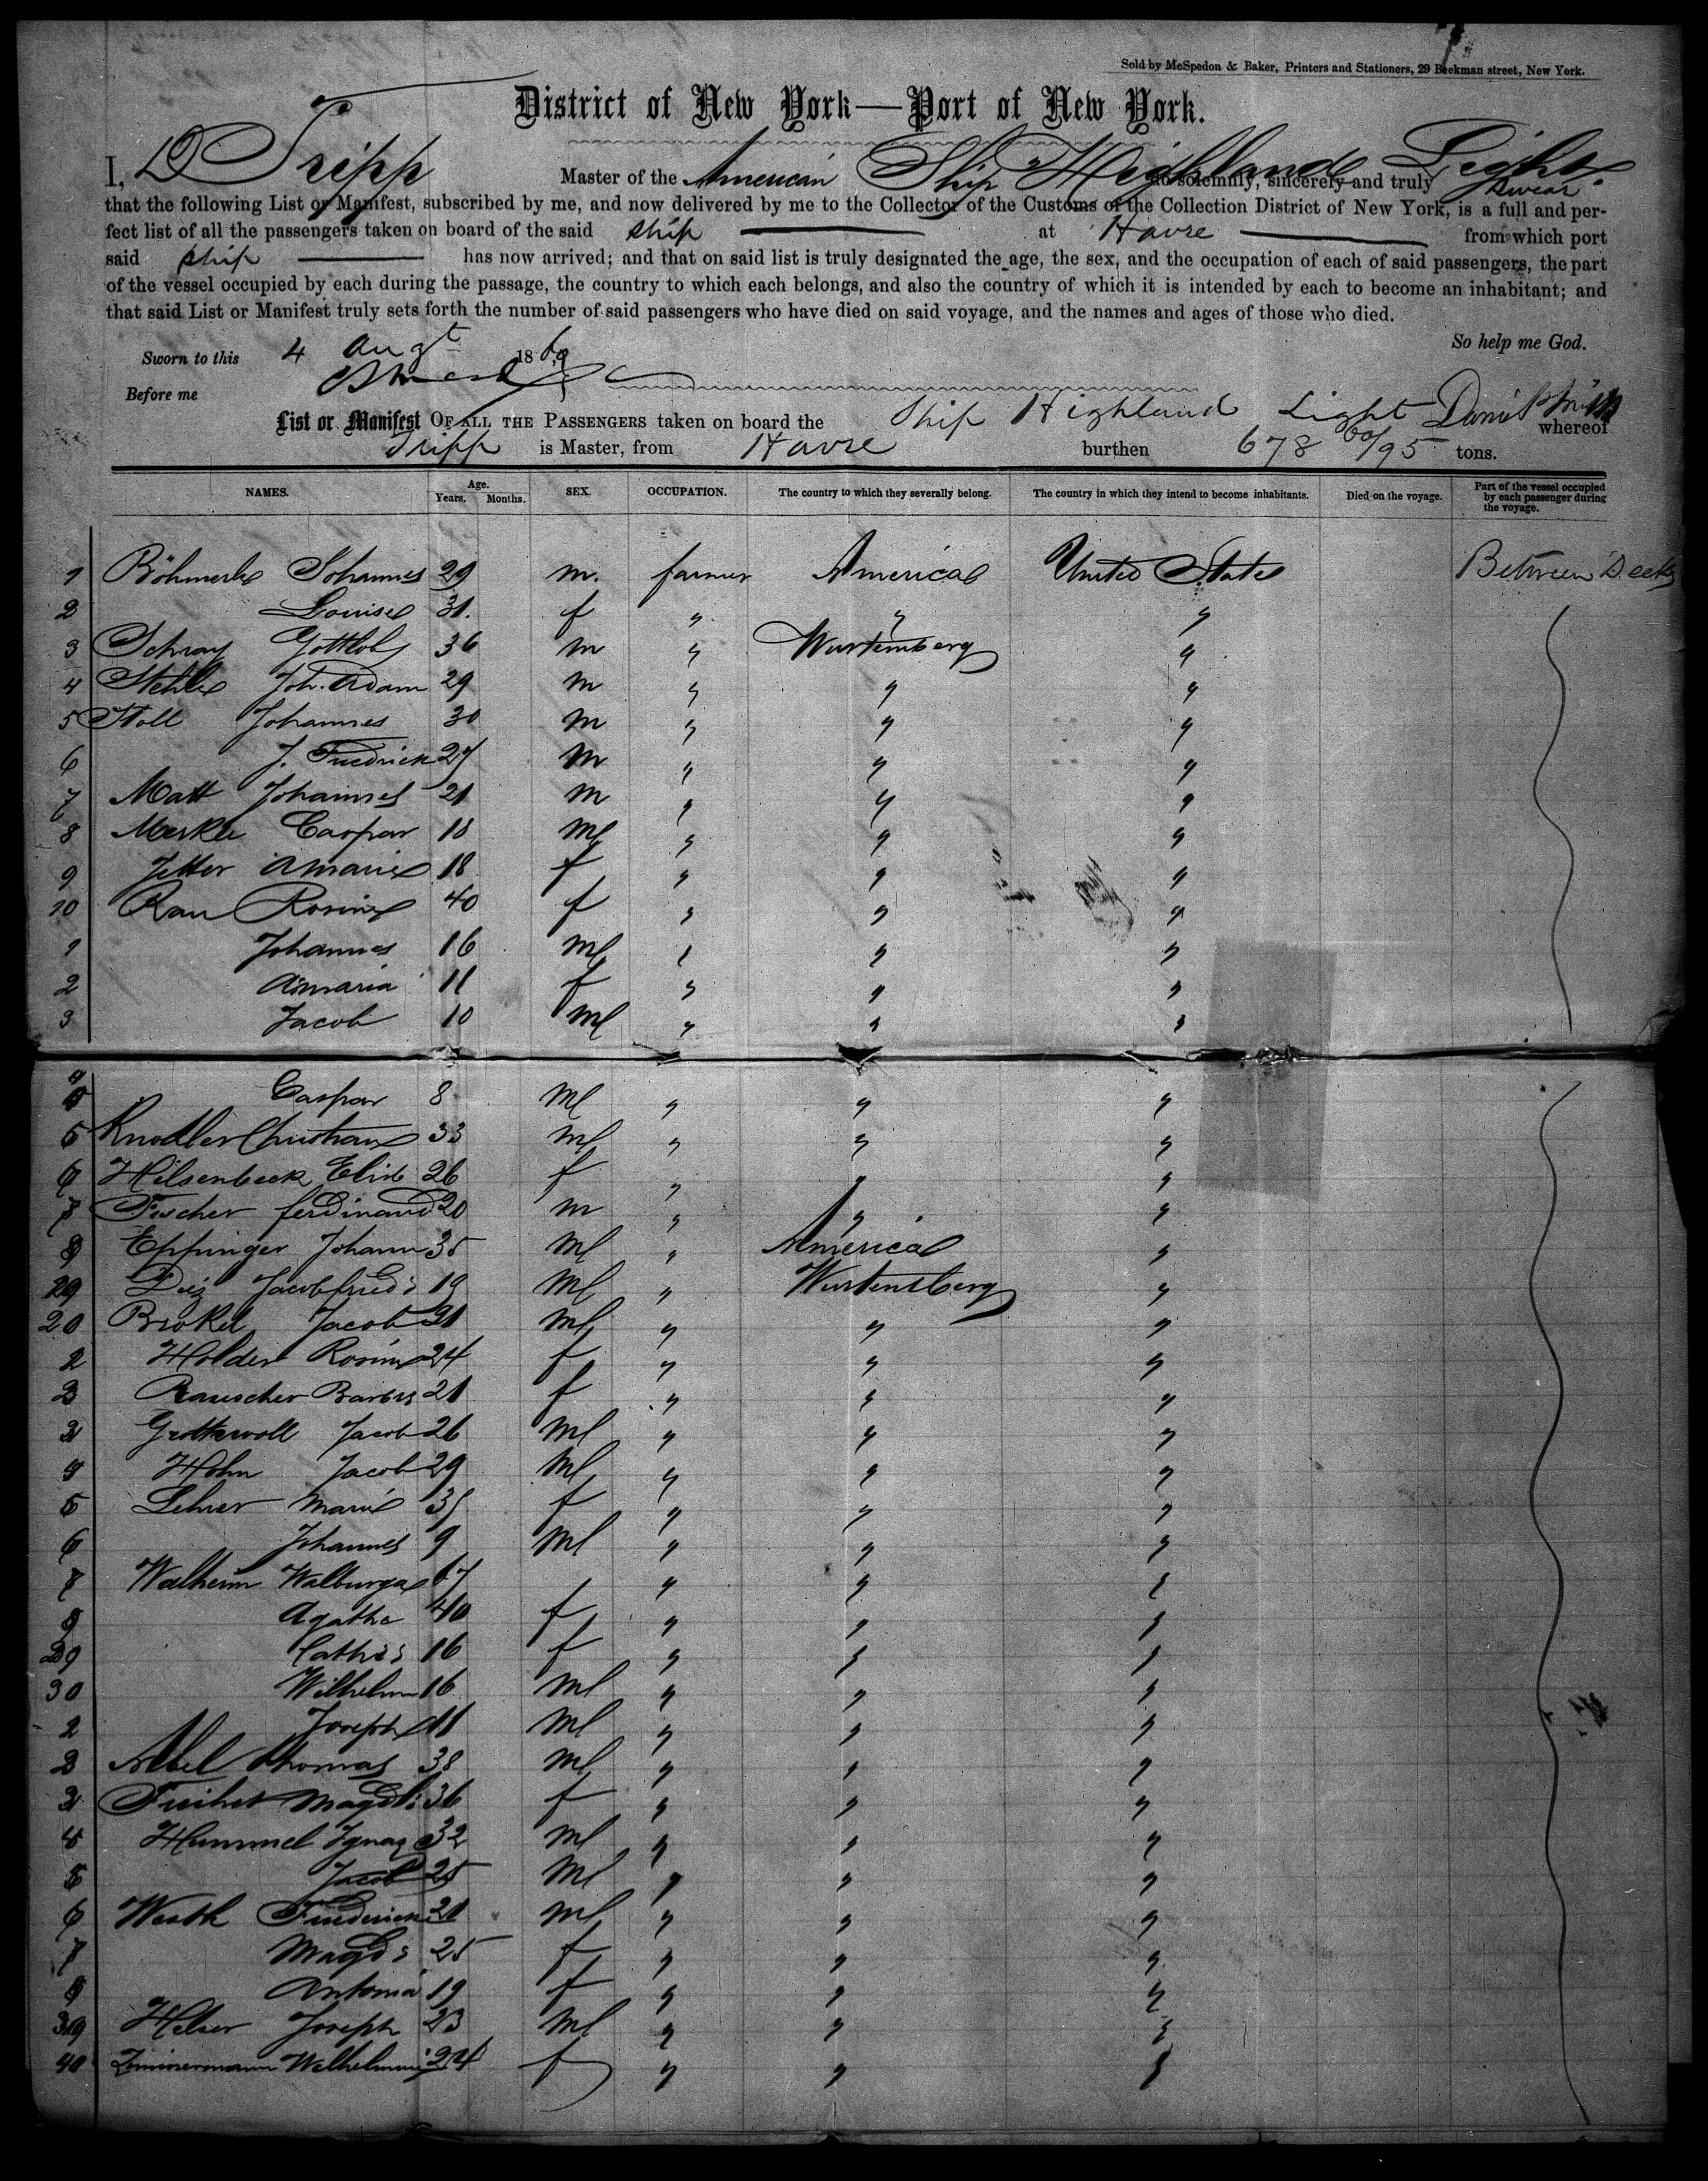 Sold by McSpedon & Baker, Printers and Stationers, 29 Beekman street, New York.
District of New York—Port of New York.
I, D Tripp Master of the American Ship Highland Light do solemnly, sincerely and truly swear
that the following List or Manifest, subscribed by me, and now delivered by me to the Collector of the Customs of the Collection District of New York, is a full and per-
fect list of all the passengers taken on board of the said ship at Havre from which port
said ship has now arrived; and that on said list is truly designated the age, the sex, and the occupation of each of said passengers, the part
of the vessel occupied by each during the passage, the country to which each belongs, and also the country of which it is intended by each to become an inhabitant; and
that said List or Manifest truly sets forth the number of said passengers who have died on said voyage, and the names and ages of those who died.
So help me God.
Sworn to this 4 Augt 1860
Before me
List or Manifest OF ALL THE PASSENGERS taken on board the Ship Highland Light whereof
Tripp is Master, from Havre burthen 678 60/95 tons.
NAMES. Age. Years. Months. SEX. OCCUPATION. The country to which they severally belong. The country in which they intend to become inhabitants. Died on the voyage. Part of the vessel occupied by each passenger during the voyage.
1 Johannes 29 m. farmer America United States Between Decks
2 Louise 31. f " " "
3 Schray Gottlob 36 m " Wurtemberg "
4 Stehle Joh. Adam 29 m " " "
5 Stoll Johannes 30 m " " "
6 J. Friedrick 27 m " " "
7 Matt Johannes 21 m " " "
8 Caspar 18 ml " " "
9 Jetter Amarie 18 f " " "
10 Rau Rosine 40 f " " "
1 Johannes 16 ml " " "
2 Amaria 11 f " " "
3 Jacob 10 ml " " "
4 Caspar 8 ml " " "
5 Knodler Christian 33 ml " " "
6 Hilsenbeck Elisb 26 f " " "
7 Fischer ferdinand 20 m " " "
8 Eppinger Johann 35 ml " America "
19 Diez Jacob fried 19 ml " Wurtemberg "
20 Jacob 21 ml " " "
2 Holder Rosine 24 f " " "
3 Rauscher Barbra 21 f " " "
Jacob 26 ml " " "
Hohn Jacob 29 ml " " "
5 Lehrer Marie 35 f " " "
6 Johannes 9 ml " " "
7 Walburga 67 " " "
Agatha 40 f " " "
29 16 f " " "
30 Wilhelm 16 ml " " "
2 Joseph 11 ml " " "
3 Abel Thomas 38 ml " " "
36 f " " "
Hummel Ignaz 32 ml " " "
5 Jacob 25 ml " " "
6 Friedericke 21 ml " " "
7 Magd 25 f " " "
Antonia 19 f " " "
39 Joseph 23 ml " " "
40 Zimmermann Wilhelmine 24 f " " "